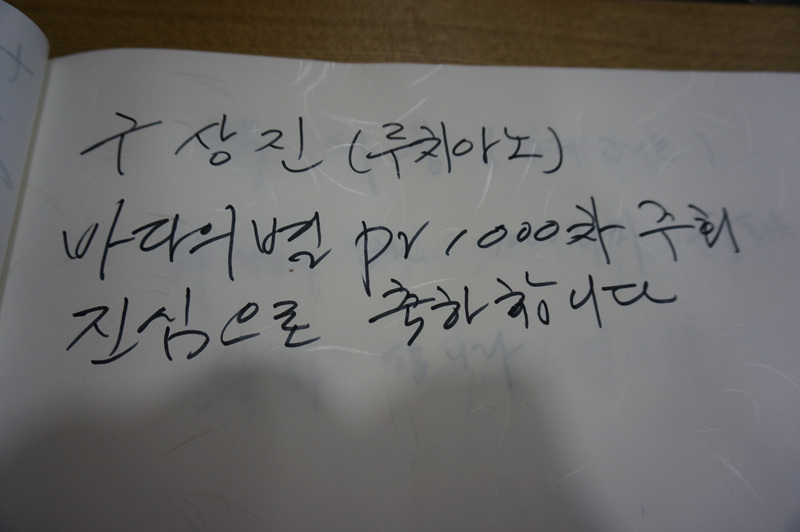 구상진 (루치아노)
바다의별 pr 1000차 주회
진심으로 축하합니다